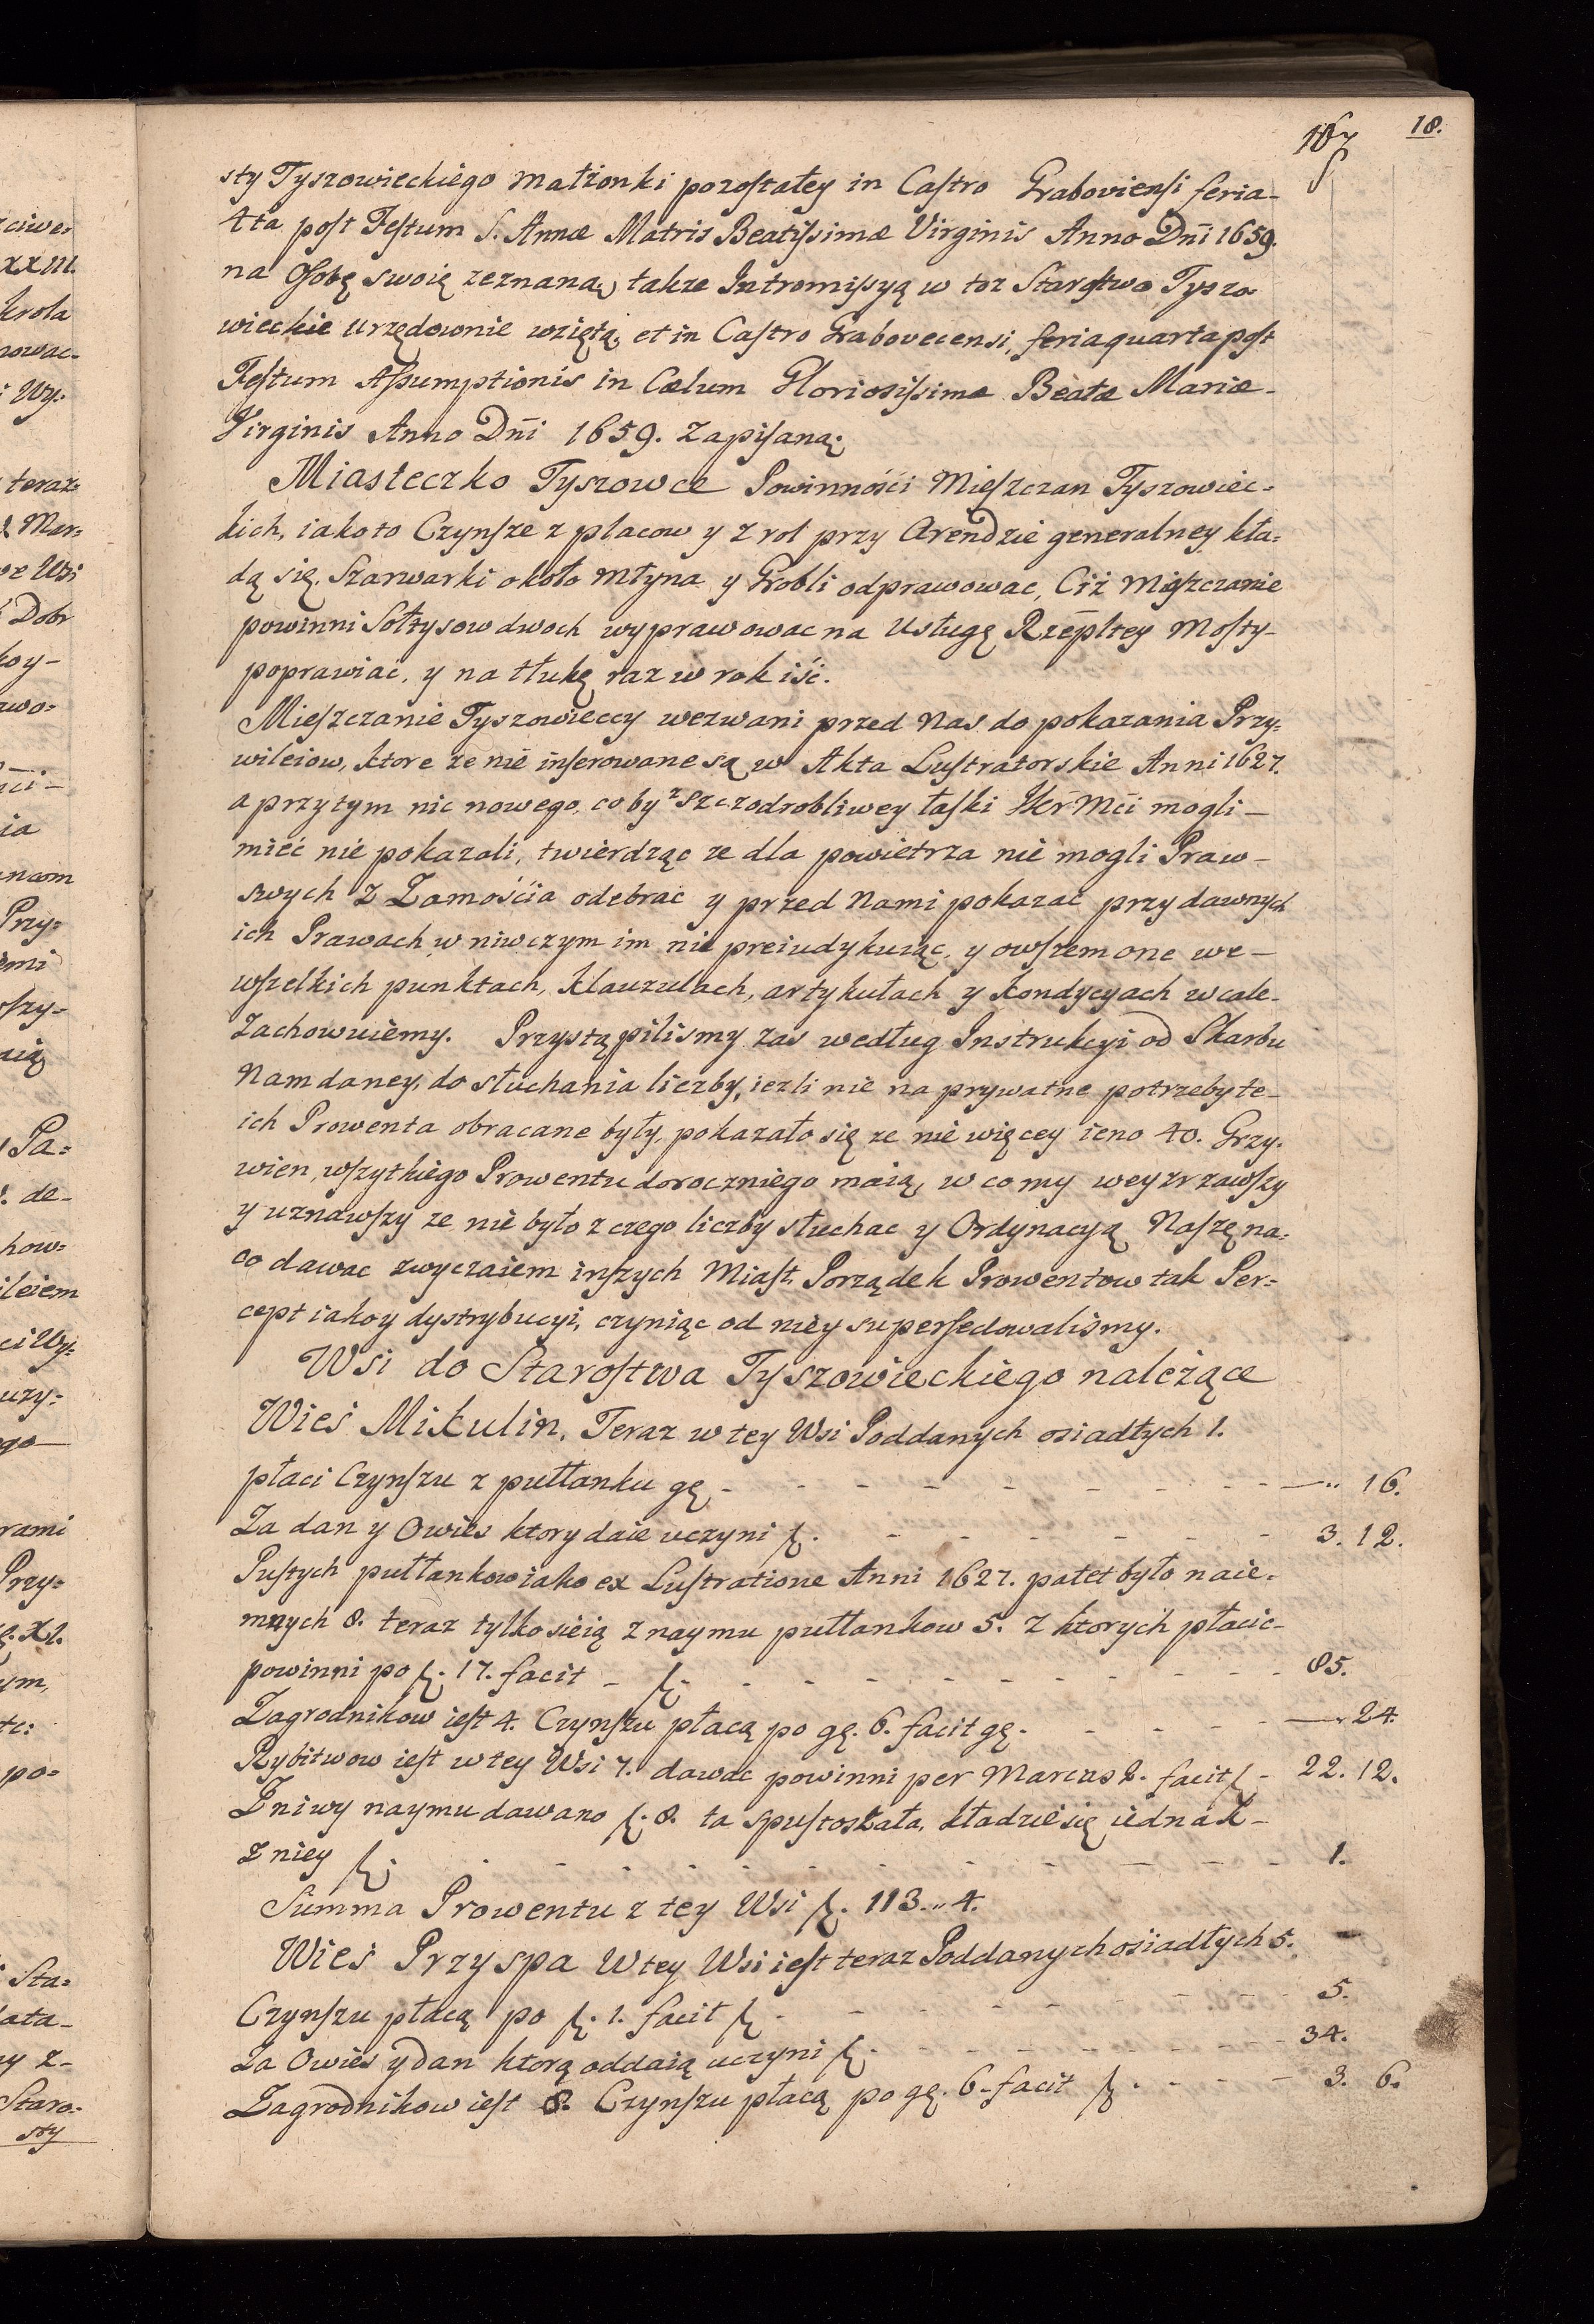 167 18.
sty Tyszowieckiego małżonki pozostałey in Castro Graboviensi feria-
4ta post Festum S. Annæ Matris Beatissimæ Virginis Anno Dñi 1659.
na Osobę swoię zeznaną, także Intromissyą w toż Starostwo Tyszo-
wieckie urzędownie wziętą, et in Castro Grabovecensi, feria quarta post
Festum Assumptionis in Cælum Gloriosissimæ Beatæ Mariæ-
Virginis Anno Dñi 1659. zapisaną;
Miasteczko Tyszowce Powinności Mieszczan Tyszowiec=
kich, iako to Czynsze z placow y z rol przy Arendzie generalney kła=
dą się. Szarwarki około młyna y Grobli odprawowac, Ciż Mieszczanie
powinni Sołtysow dwoch wyprawowac na usługę Rzepltey Mosty-
poprawiać, y na tłukę raz w rok iść.
Mieszczanie Tyszowieccy wezwani przed Nas do pokazania Przy=
wileiow, ktore że nie inserowane są w Akta Lustratorskie Anni 1627.
a przy tym nic nowego, co by z szczodrobliwey łaski JKr Mci mogli-
mieć nie pokazali, twierdząc że dla powietrza nie mogli Praw-
swych z Zamościa odebrac y przed nami pokazać przy dawnych
ich Prawach w niwczym im nie preiudykuiąc, y owszem one we-
wszelkich punktach, klauzulach, artykułach y kondycyach wcale-
zachowuiemy. Przystąpilismy zas według Instrukcyi od Skarbu
Nam daney, do słuchania liczby, ieżli nie na prywatne potrzeby te-
ich Prowenta obracane były, pokazało się że nie więcey ieno 40. Grzy-
wien, wszytkiego Prowentu dorocznego maią, w co my weyzrzawszy
y uznawszy że nie było z czego liczby słuchac y Ordynacyą Naszę na=
co dawac zwyczaiem inszych Miast. Porządek Prowentow tak Per=
cept iako y dystrybucyi, czyniąc od niey supersedowaliśmy.
Wsi do Starostwa Tyszowieckiego należące
Wieś Mikulin. Teraz w tey Wsi Poddanych osiadłych 1.
płaci Czynszu z pułłanku gę - - - - - - - - " 16.
Za dan y Owies ktory daie uczyni f. - - - - - - - 3. 12.
Pustych pułłankow iako ex Lustratione Anni 1627. patet było naie-
mnych 8. teraz tylko sieią z naymu pułłankow 5. z ktorych płacic-
powinni po f. 17. facit - f. - - - - - - - - - 85.
Zagrodnikow iest 4. Czynszu płacą po gę. 6. facit gę. - - - - - 24.
Rybitwow iest w tey Wsi 7. dawac powinni per Marcas 2. facit f - 22. 12.
Z niwy naymu dawano f. 8. ta spustoszała, kładzie się iednak-
z niey f. - - - - - - - - - - - - 1.
Summa Prowentu z tey Wsi f. 113. " 4.
Wieś Przyspa W tey Wsi iest teraz Poddanych osiadłych 5.
Czynszu płacą po f. 1. facit f. - - - - - - - - 5.
Za Owies y dan ktorą oddaią uczyni f. - - - - - - - - 34.
Zagrodnikow iest 8. Czynszu płacą po gę. 6. facit f. - - - - 3. 6.